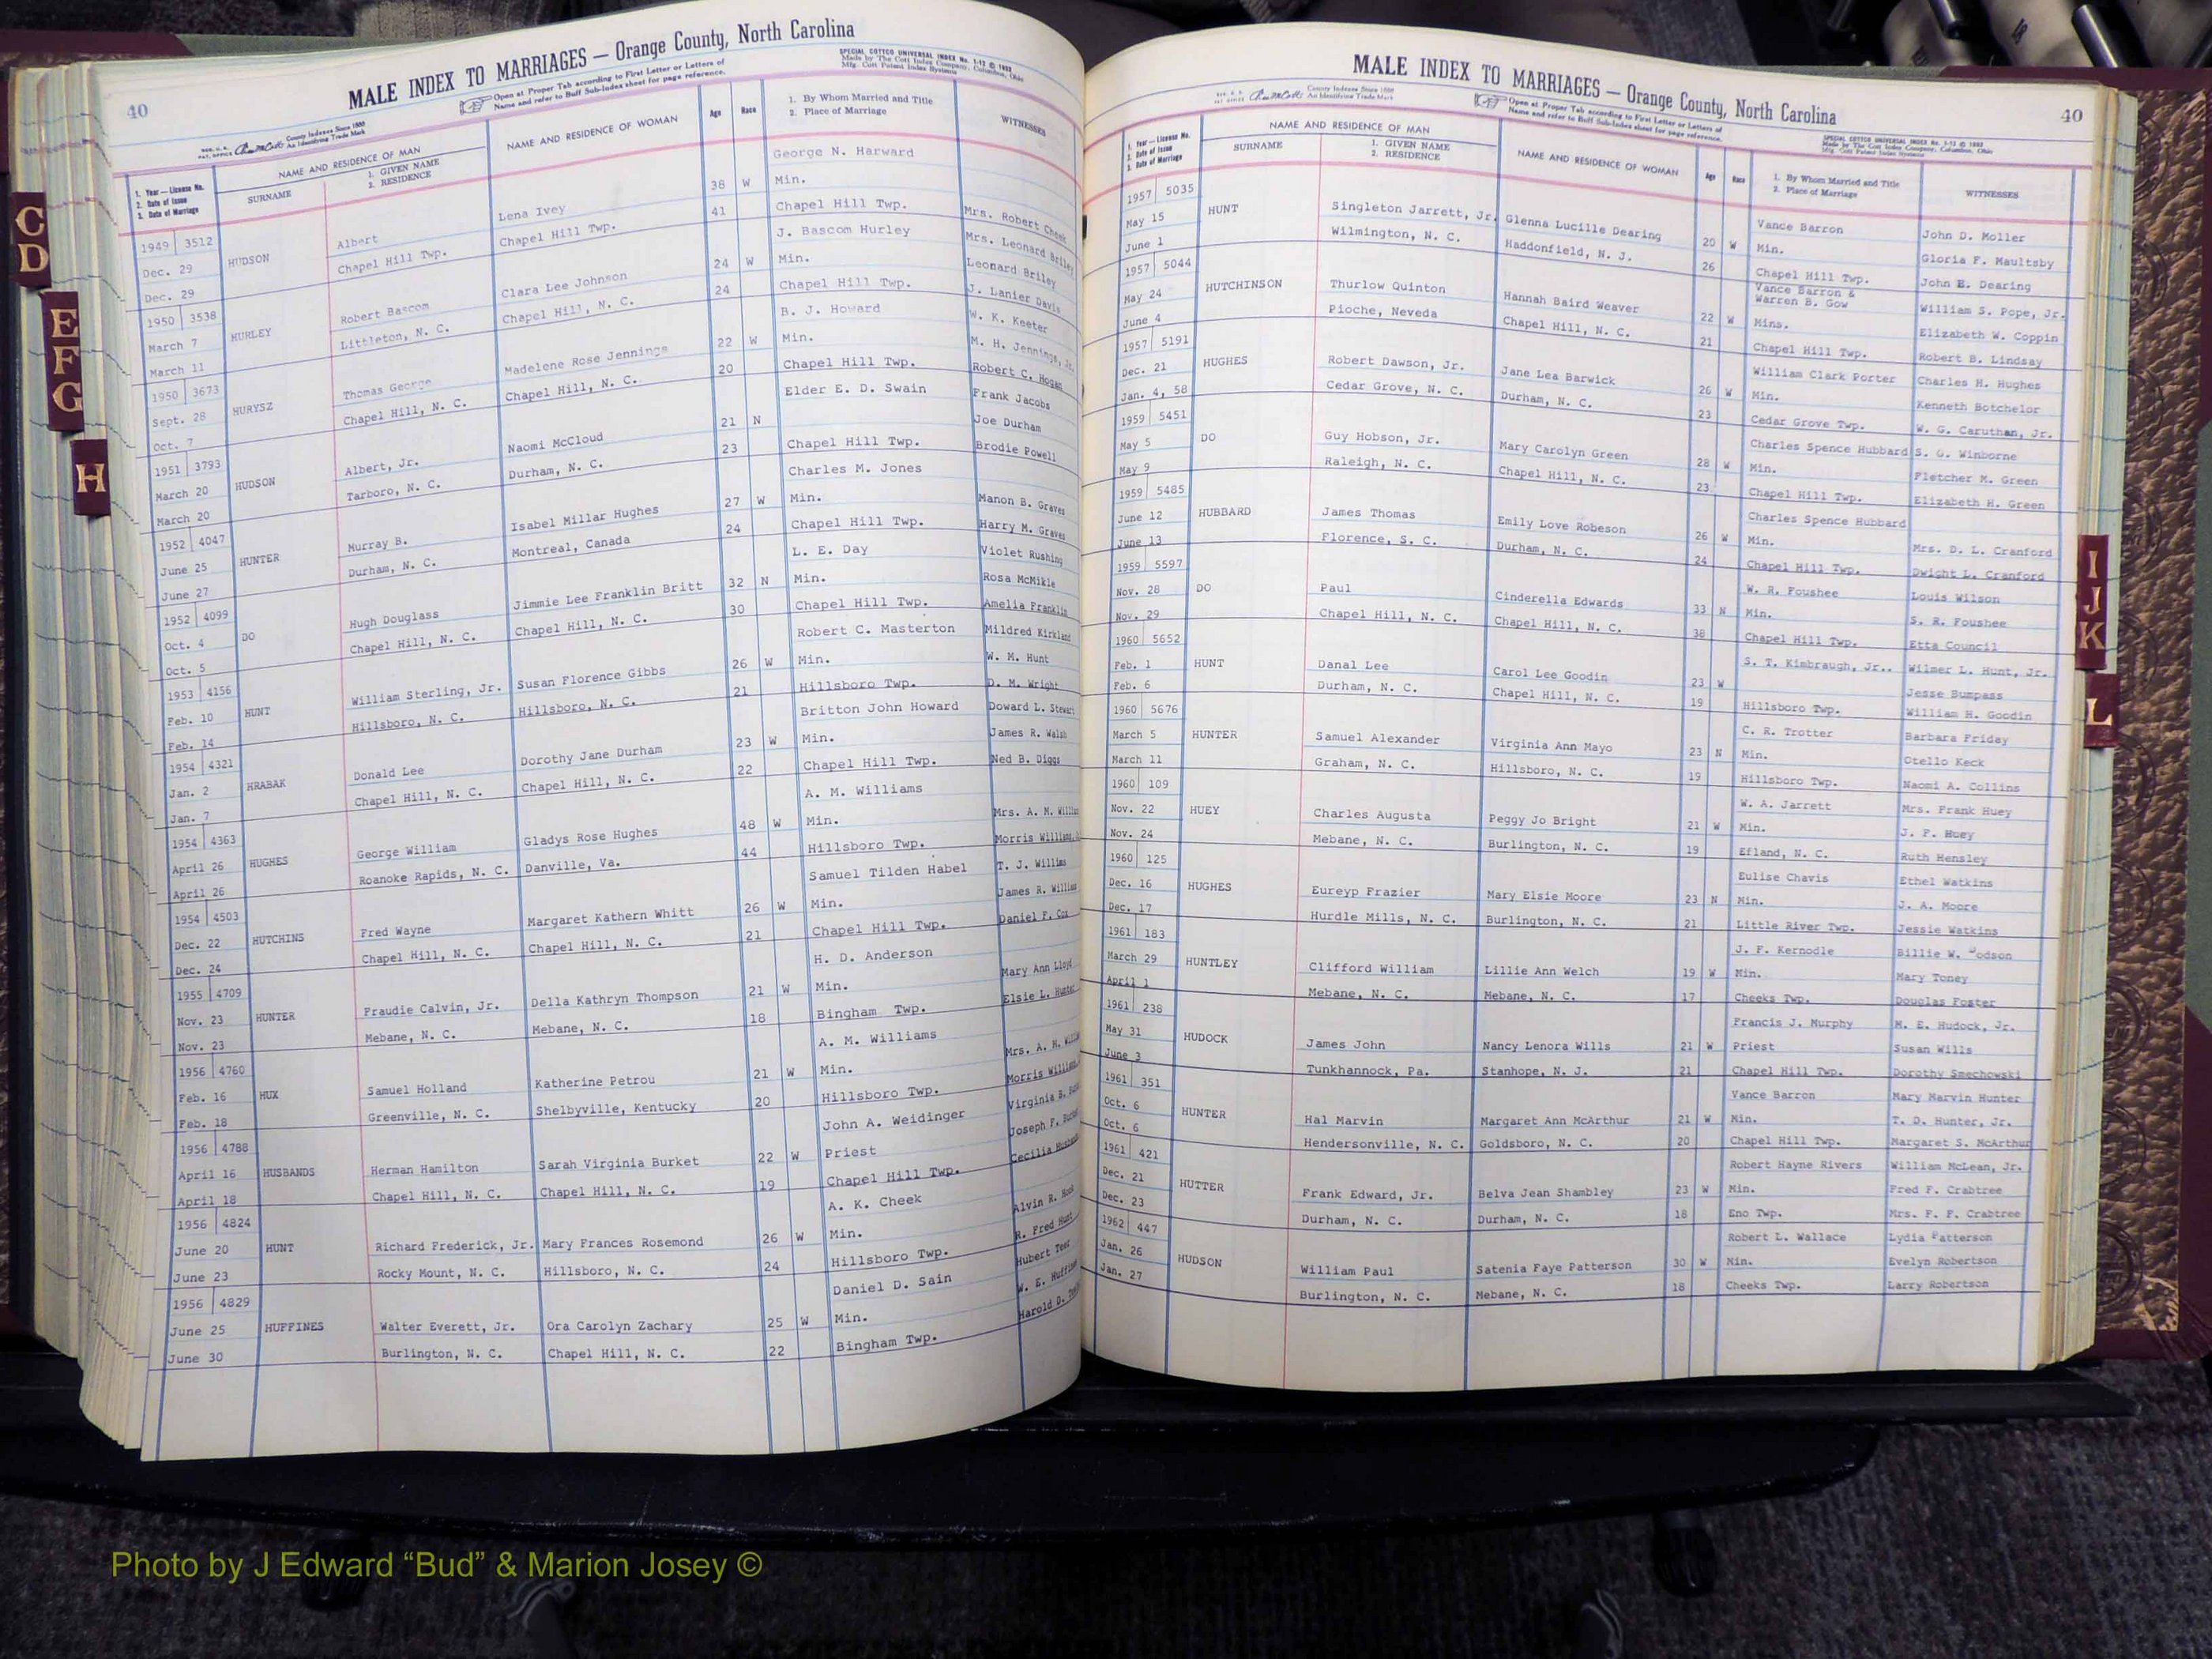 C
D
E
F
G
H
40
MALE INDEX TO MARRIAGES — Orange County, North Carolina
Open at Proper Tab according to First Letter or Letters of
Name and refer to Buff Sub-Index sheet for page reference.
SPECIAL COTTCO UNIVERSAL INDEX No. 1-12 © 1952
Made by The Cott Index Company, Columbus, Ohio
Mfg. Cott Patent Index Systems
County Indexes Since 1888
An Identifying Trade Mark
1. Year — License No.
2. Date of Issue
3. Date of Marriage
NAME AND RESIDENCE OF MAN
SURNAME
1. GIVEN NAME
2. RESIDENCE
NAME AND RESIDENCE OF WOMAN
Age
Race
1. By Whom Married and Title
2. Place of Marriage
WITNESSES
1949 3512 George N. Harward
Dec. 29 HUDSON Albert Lena Ivey 38 W Min.
Dec. 29 Chapel Hill Twp. Chapel Hill Twp. 41 Chapel Hill Twp.
1950 3538 J. Bascom Hurley Mrs. Robert Cheek
March 7 HURLEY Robert Bascom Clara Lee Johnson 24 W Min. Mrs. Leonard Briley
March 11 Littleton, N. C. Chapel Hill, N. C. 24 Chapel Hill Twp. Leonard Briley
1950 3673 B. J. Howard J. Lanier Davis
Sept. 28 HURYSZ Thomas George Madelene Rose Jennings 22 W Min. W. K. Keeter
Oct. 7 Chapel Hill, N. C. Chapel Hill, N. C. 20 Chapel Hill Twp. M. H. Jennings, Jr.
1951 3793 Elder E. D. Swain Robert C. Hogan
March 20 HUDSON Albert, Jr. Naomi McCloud 21 N Frank Jacobs
March 20 Tarboro, N. C. Durham, N. C. 23 Chapel Hill Twp. Joe Durham
1952 4047 Charles M. Jones Brodie Powell
June 25 HUNTER Murray B. Isabel Millar Hughes 27 W Min. Manon B. Graves
June 27 Durham, N. C. Montreal, Canada 24 Chapel Hill Twp. Harry M. Graves
1952 4099 L. E. Day Violet Rushing
Oct. 4 DO Hugh Douglass Jimmie Lee Franklin Britt 32 N Min. Rosa McMikle
Oct. 5 Chapel Hill, N. C. Chapel Hill, N. C. 30 Chapel Hill Twp. Amelia Franklin
1953 4156 Robert C. Masterton Mildred Kirkland
Feb. 10 HUNT William Sterling, Jr. Susan Florence Gibbs 26 W Min. W. M. Hunt
Feb. 14 Hillsboro, N. C. Hillsboro, N. C. 21 Hillsboro Twp. D. M. Wright
1954 4321 Britton John Howard Doward L. Stewart
Jan. 2 HRABAK Donald Lee Dorothy Jane Durham 23 W Min. James R. Walsh
Jan. 7 Chapel Hill, N. C. Chapel Hill, N. C. 22 Chapel Hill Twp. Ned B. Diggs
1954 4363 A. M. Williams
April 26 HUGHES George William Gladys Rose Hughes 48 W Min. Mrs. A. M.
April 26 Roanoke Rapids, N. C. Danville, Va. 44 Hillsboro Twp. Morris
1954 4503 Samuel Tilden Habel T. J.
Dec. 22 HUTCHINS Fred Wayne Margaret Kathern Whitt 26 W Min. James R.
Dec. 24 Chapel Hill, N. C. Chapel Hill, N. C. 21 Chapel Hill Twp. Daniel F. Cox
1955 4709 H. D. Anderson
Nov. 23 HUNTER Fraudie Calvin, Jr. Della Kathryn Thompson 21 W Min. Mary Ann Lloyd
Nov. 23 Mebane, N. C. Mebane, N. C. 18 Bingham Twp. Elsie L. Hunter
1956 4760 A. M. Williams
Feb. 16 HUX Samuel Holland Katherine Petrou 21 W Min. Mrs. A. M.
Feb. 18 Greenville, N. C. Shelbyville, Kentucky 20 Hillsboro Twp. Morris
1956 4788 John A. Weidinger Virginia B.
April 16 HUSBANDS Herman Hamilton Sarah Virginia Burket 22 W Priest Joseph F.
April 18 Chapel Hill, N. C. Chapel Hill, N. C. 19 Chapel Hill Twp. Cecilia
1956 4824 A. K. Cheek
June 20 HUNT Richard Frederick, Jr. Mary Frances Rosemond 26 W Min. Alvin R.
June 23 Rocky Mount, N. C. Hillsboro, N. C. 24 Hillsboro Twp. R. Fred Hunt
1956 4829 Daniel D. Sain Hubert
June 25 HUFFINES Walter Everett, Jr. Ora Carolyn Zachary 25 W Min. W. E.
June 30 Burlington, N. C. Chapel Hill, N. C. 22 Bingham Twp. Harold D.
40
MALE INDEX TO MARRIAGES — Orange County, North Carolina
County Indexes Since 1888
An Identifying Trade Mark
Open at Proper Tab according to First Letter or Letters of
Name and refer to Buff Sub-Index sheet for page reference.
SPECIAL COTTCO UNIVERSAL INDEX No. 1-12 © 1952
Made by The Cott Index Company, Columbus, Ohio
Mfg. Cott Patent Index Systems
1. Year — License No.
2. Date of Issue
3. Date of Marriage
NAME AND RESIDENCE OF MAN
SURNAME
1. GIVEN NAME
2. RESIDENCE
NAME AND RESIDENCE OF WOMAN
Age
Race
1. By Whom Married and Title
2. Place of Marriage
WITNESSES
1957 5035 Vance Barron John D. Moller
May 15 HUNT Singleton Jarrett, Jr. Glenna Lucille Dearing 20 W Min. Gloria F. Maultsby
June 1 Wilmington, N. C. Haddonfield, N. J. 26 Chapel Hill Twp. John E. Dearing
1957 5044 Vance Barron & Warren B. Gow William S. Pope, Jr.
May 24 HUTCHINSON Thurlow Quinton Hannah Baird Weaver 22 W Mins. Elizabeth W. Coppin
June 4 Pioche, Neveda Chapel Hill, N. C. 21 Chapel Hill Twp. Robert B. Lindsay
1957 5191 William Clark Porter Charles H. Hughes
Dec. 21 HUGHES Robert Dawson, Jr. Jane Lea Barwick 26 W Min. Kenneth Botchelor
Jan. 4, 58 Cedar Grove, N. C. Durham, N. C. 23 Cedar Grove Twp. W. G. Caruthan, Jr.
1959 5451 Charles Spence Hubbard S. G. Winborne
May 5 DO Guy Hobson, Jr. Mary Carolyn Green 28 W Min. Fletcher M. Green
May 9 Raleigh, N. C. Chapel Hill, N. C. 23 Chapel Hill Twp. Elizabeth H. Green
1959 5485 Charles Spence Hubbard
June 12 HUBBARD James Thomas Emily Love Robeson 26 W Min. Mrs. D. L. Cranford
June 13 Florence, S. C. Durham, N. C. 24 Chapel Hill Twp. Dwight L. Cranford
1959 5597 W. R. Foushee Louis Wilson
Nov. 28 DO Paul Cinderella Edwards 33 N Min. S. R. Foushee
Nov. 29 Chapel Hill, N. C. Chapel Hill, N. C. 38 Chapel Hill Twp. Etta Council
1960 5652 S. T. Kimbraugh, Jr.. Wilmer L. Hunt, Jr.
Feb. 1 HUNT Danal Lee Carol Lee Goodin 23 W Jesse Bumpass
Feb. 6 Durham, N. C. Chapel Hill, N. C. 19 Hillsboro Twp. William H. Goodin
1960 5676 C. R. Trotter Barbara Friday
March 5 HUNTER Samuel Alexander Virginia Ann Mayo 23 N Min. Otello Keck
March 11 Graham, N. C. Hillsboro, N. C. 19 Hillsboro Twp. Naomi A. Collins
1960 109 W. A. Jarrett Mrs. Frank Huey
Nov. 22 HUEY Charles Augusta Peggy Jo Bright 21 W Min. J. F. Huey
Nov. 24 Mebane, N. C. Burlington, N. C. 19 Efland, N. C. Ruth Hensley
1960 125 Eulise Chavis Ethel Watkins
Dec. 16 HUGHES Eureyp Frazier Mary Elsie Moore 23 N Min. J. A. Moore
Dec. 17 Hurdle Mills, N. C. Burlington, N. C. 21 Little River Twp. Jessie Watkins
1961 183 J. F. Kernodle Billie W. Dodson
March 29 HUNTLEY Clifford William Lillie Ann Welch 19 W Min. Mary Toney
April 1 Mebane, N. C. Mebane, N. C. 17 Cheeks Twp. Douglas Foster
1961 238 Francis J. Murphy M. E. Hudock, Jr.
May 31 HUDOCK James John Nancy Lenora Wills 21 W Priest Susan Wills
June 3 Tunkhannock, Pa. Stanhope, N. J. 21 Chapel Hill Twp. Dorothy Smechowski
1961 351 Vance Barron Mary Marvin Hunter
Oct. 6 HUNTER Hal Marvin Margaret Ann McArthur 21 W Min. T. D. Hunter, Jr.
Oct. 6 Hendersonville, N. C. Goldsboro, N. C. 20 Chapel Hill Twp. Margaret S. McArthur
1961 421 Robert Hayne Rivers William McLean, Jr.
Dec. 21 HUTTER Frank Edward, Jr. Belva Jean Shambley 23 W Min. Fred F. Crabtree
Dec. 23 Durham, N. C. Durham, N. C. 18 Eno Twp. Mrs. F. F. Crabtree
1962 447 Robert L. Wallace Lydia Patterson
Jan. 26 HUDSON William Paul Satenia Faye Patterson 30 W Min. Evelyn Robertson
Jan. 27 Burlington, N. C. Mebane, N. C. 18 Cheeks Twp. Larry Robertson
I
J
K
L
Photo by J Edward “Bud” & Marion Josey ©